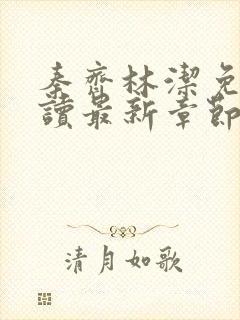 秦齊林潔免
讀最新章節
清月如歌